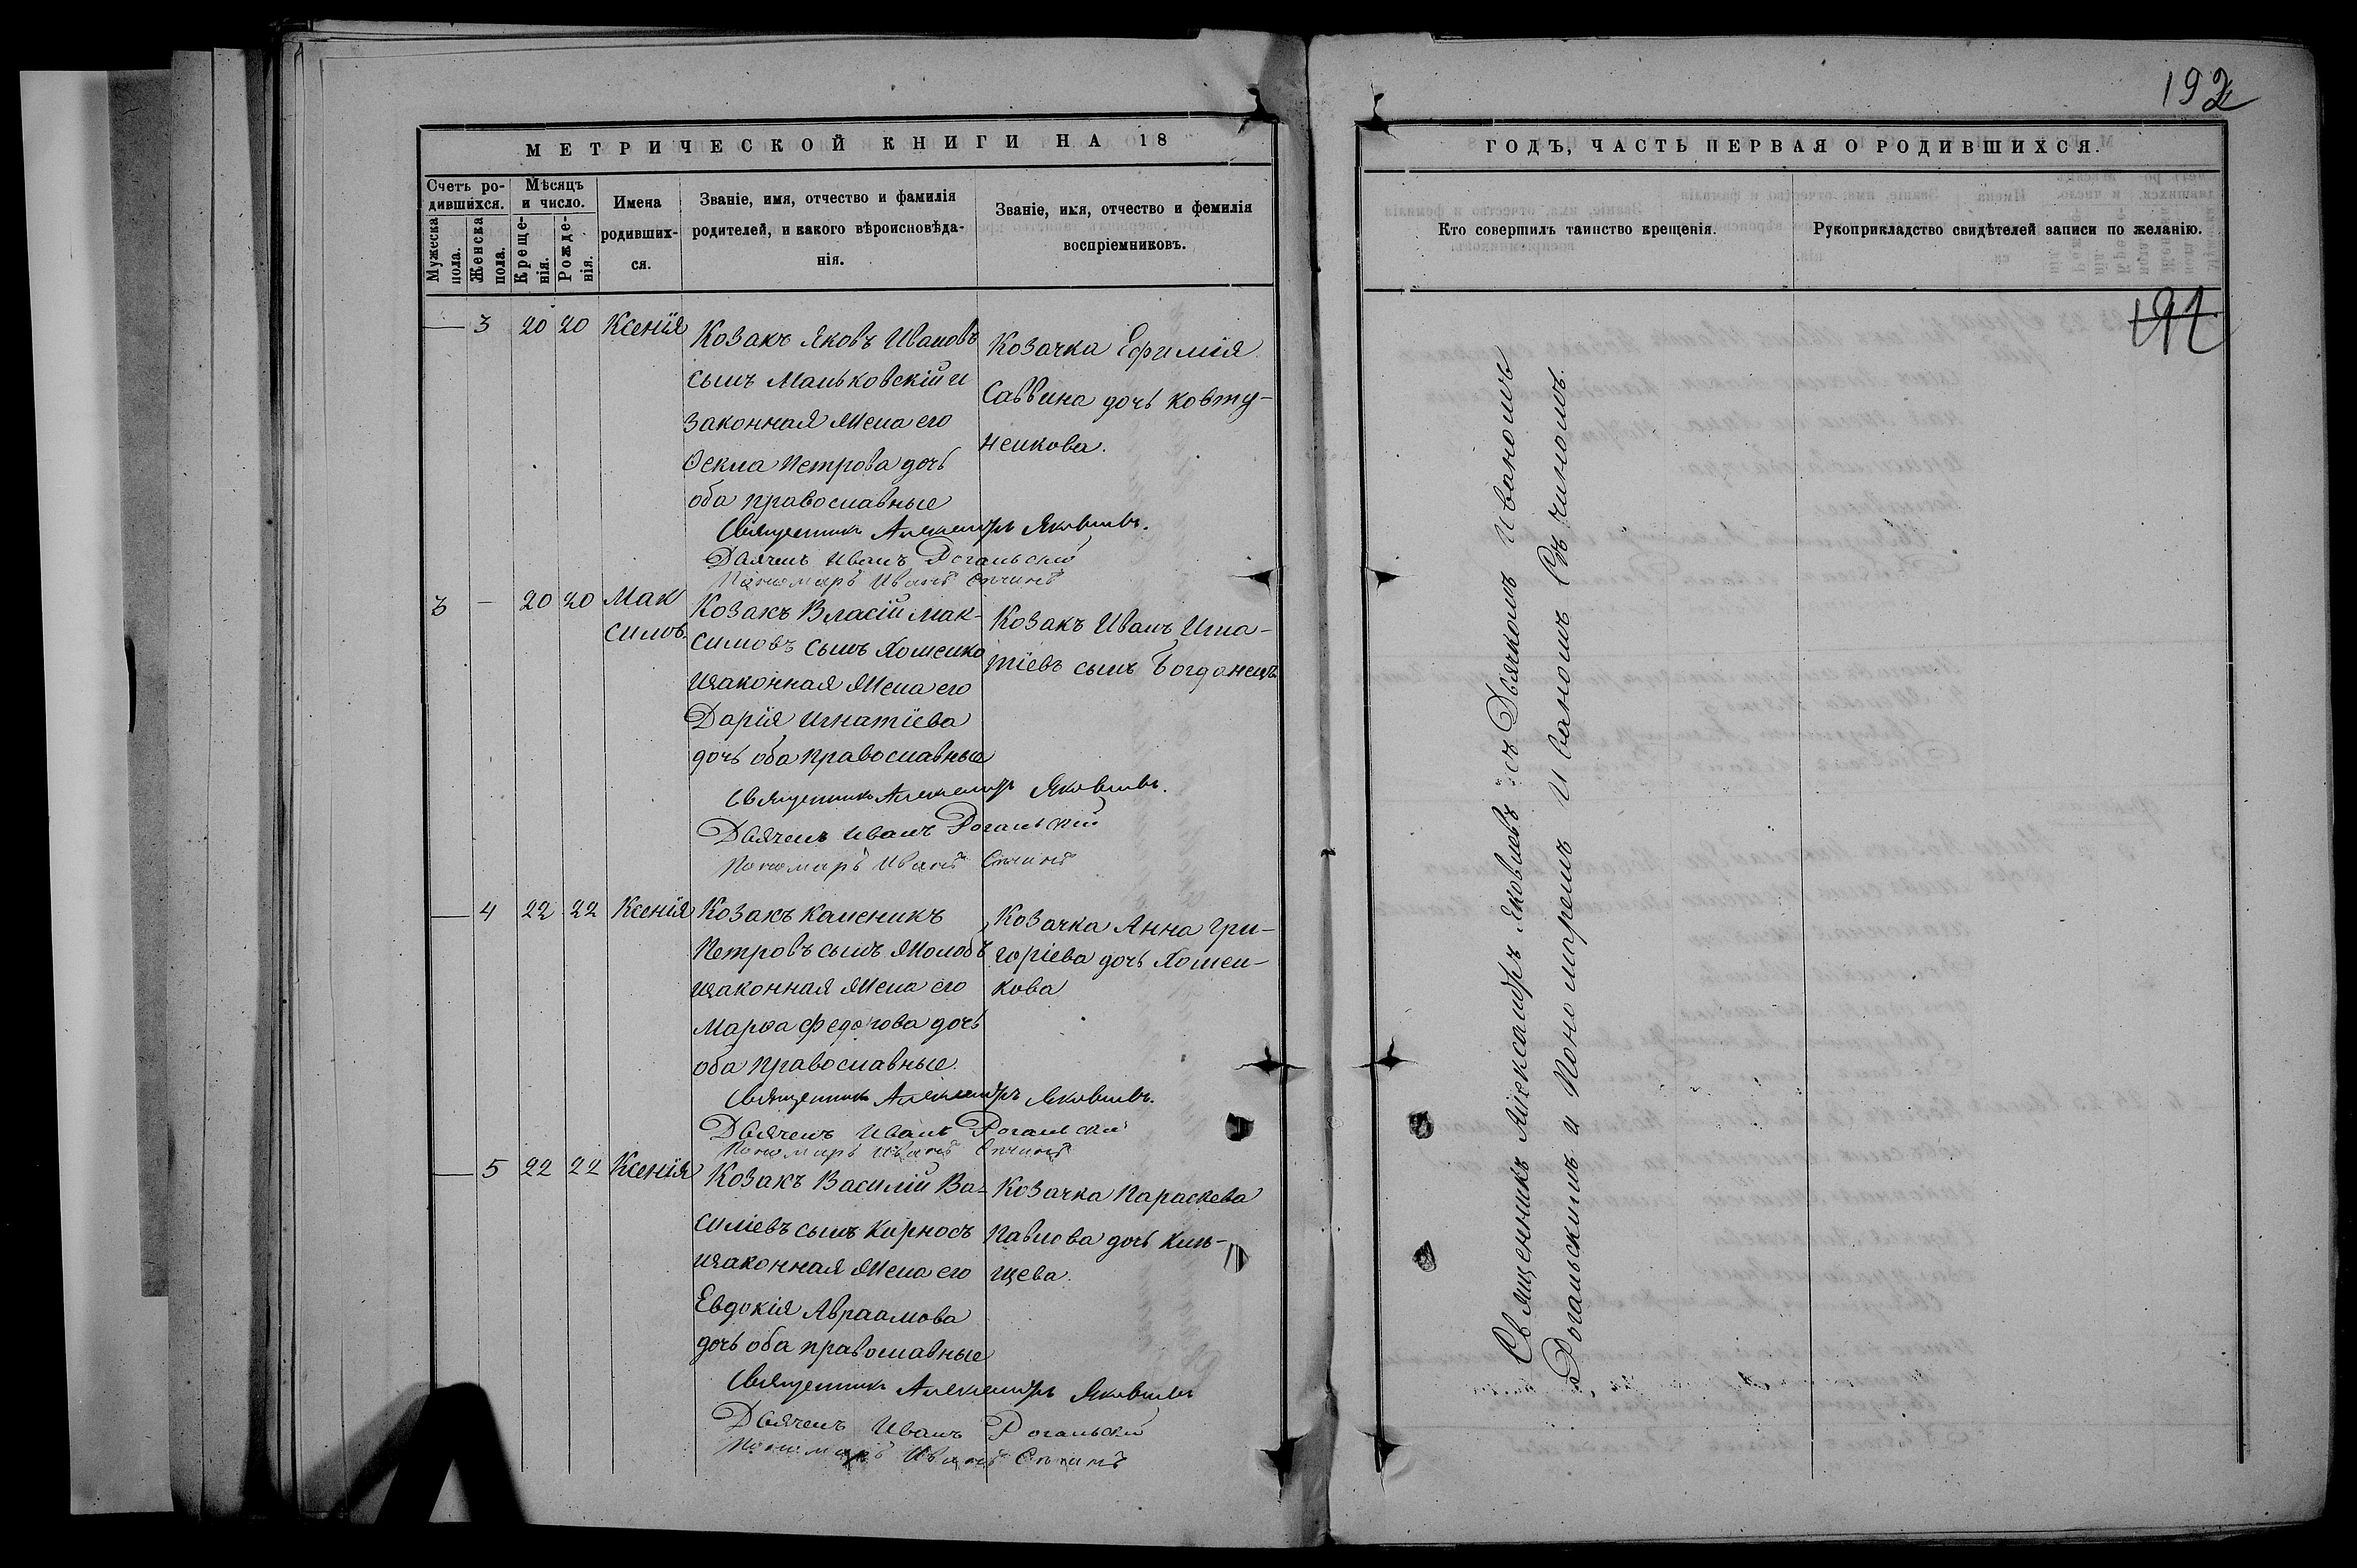 192
МЕТРИЧЕСКОЙ КНИГИ НА 18
ГОДЪ, ЧАСТЬ ПЕРВАЯ О РОДИВШИХСЯ.
Счетъ ро-
дившихся.
Мужеска
пола.
Женска
пола.
Мѣсяцъ
и число.
Креще-
нія.
Рожде-
нія.
Имена
родивших-
ся.
Званіе, имя, отчество и фамилія
родителей, и какого вѣроисповѣда-
нія.
Званіе, имя, отчество и фемилія
воспріемниковъ.
Кто совершилъ таинство крещенія.
Рукоприкладство свидѣтелей записи по желанію.
191
3 20 20 Ксенія
Козакъ Яковъ Ивановъ
сынъ Маньковскій и
законная жена его
Ѳекла Петрова дочь
оба православные
Козачка Ефимія
Саввина дочь Ковту-
ненкова.
Священникъ Александръ Яковлевъ.
Дьячекъ Иванъ Рогальскій
Пономарь Иванъ
3 - 20 20 Мак
симъ.
Козакъ Власій Мак-
симовъ сынъ Хоменко
изаконная жена его
Дарія Игнатіева
дочь оба православные
Козакъ Иванъ Игна-
тіевъ сынъ Богданецъ
Священникъ Александръ Яковлевъ.
Дьячекъ Иванъ Рогальскій
Пономарь Иванъ
4 22 22 Ксенія
Козакъ Каленикъ
Петровъ сынъ Жолобъ
изаконная жена его
Марѳа Федорова дочь
оба православные.
Козачка Анна Гри-
горіева дочь Хомен-
кова
Священникъ Александръ Яковлевъ.
Дьячекъ Иванъ Рогальскій
Пономарь Иванъ
5 22 22 Ксенія
Козакъ Василій Ва-
силіевъ сынъ Кирносъ
изаконная жена его
Евдокія Авраамова
дочь оба православные
Козачка Параскева
Павлова дочь
щева.
Священникъ Александръ Яковлевъ
Дьячекъ Иванъ Рогальскій
Пономарь Иванъ
Священникъ Александръ Яковлевъ съ Дьячкомъ Иваномъ
Рогальскимъ и Пономаремъ Иваномъ